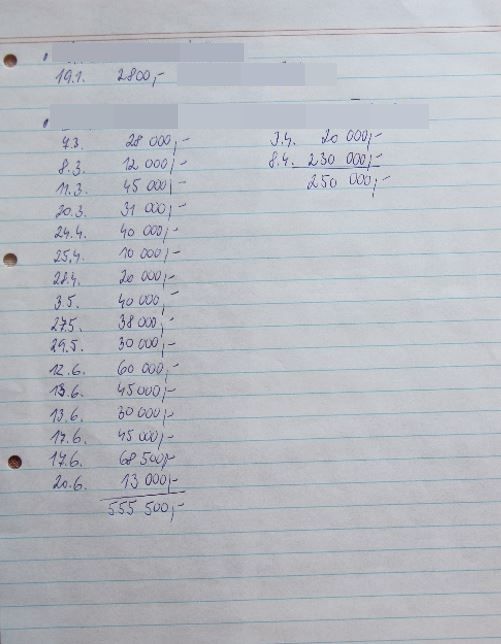 19.1. 2800,-
7.3. 28 000,-
8.3. 12 000,-
11.3. 45 000,-
20.3. 31 000,-
24.4. 40 000,-
25.4. 10 000,-
28.4. 20 000,-
3.5. 40 000,-
27.5. 38 000,-
29.5. 30 000,-
12.6. 60 000,-
13.6. 45 000,-
13.6. 30 000,-
17.6. 45 000,-
17.6. 68 500,-
20.6. 13 000,-
555 500,-
3.4. 20 000,-
8.4. 230 000,-
250 000,-